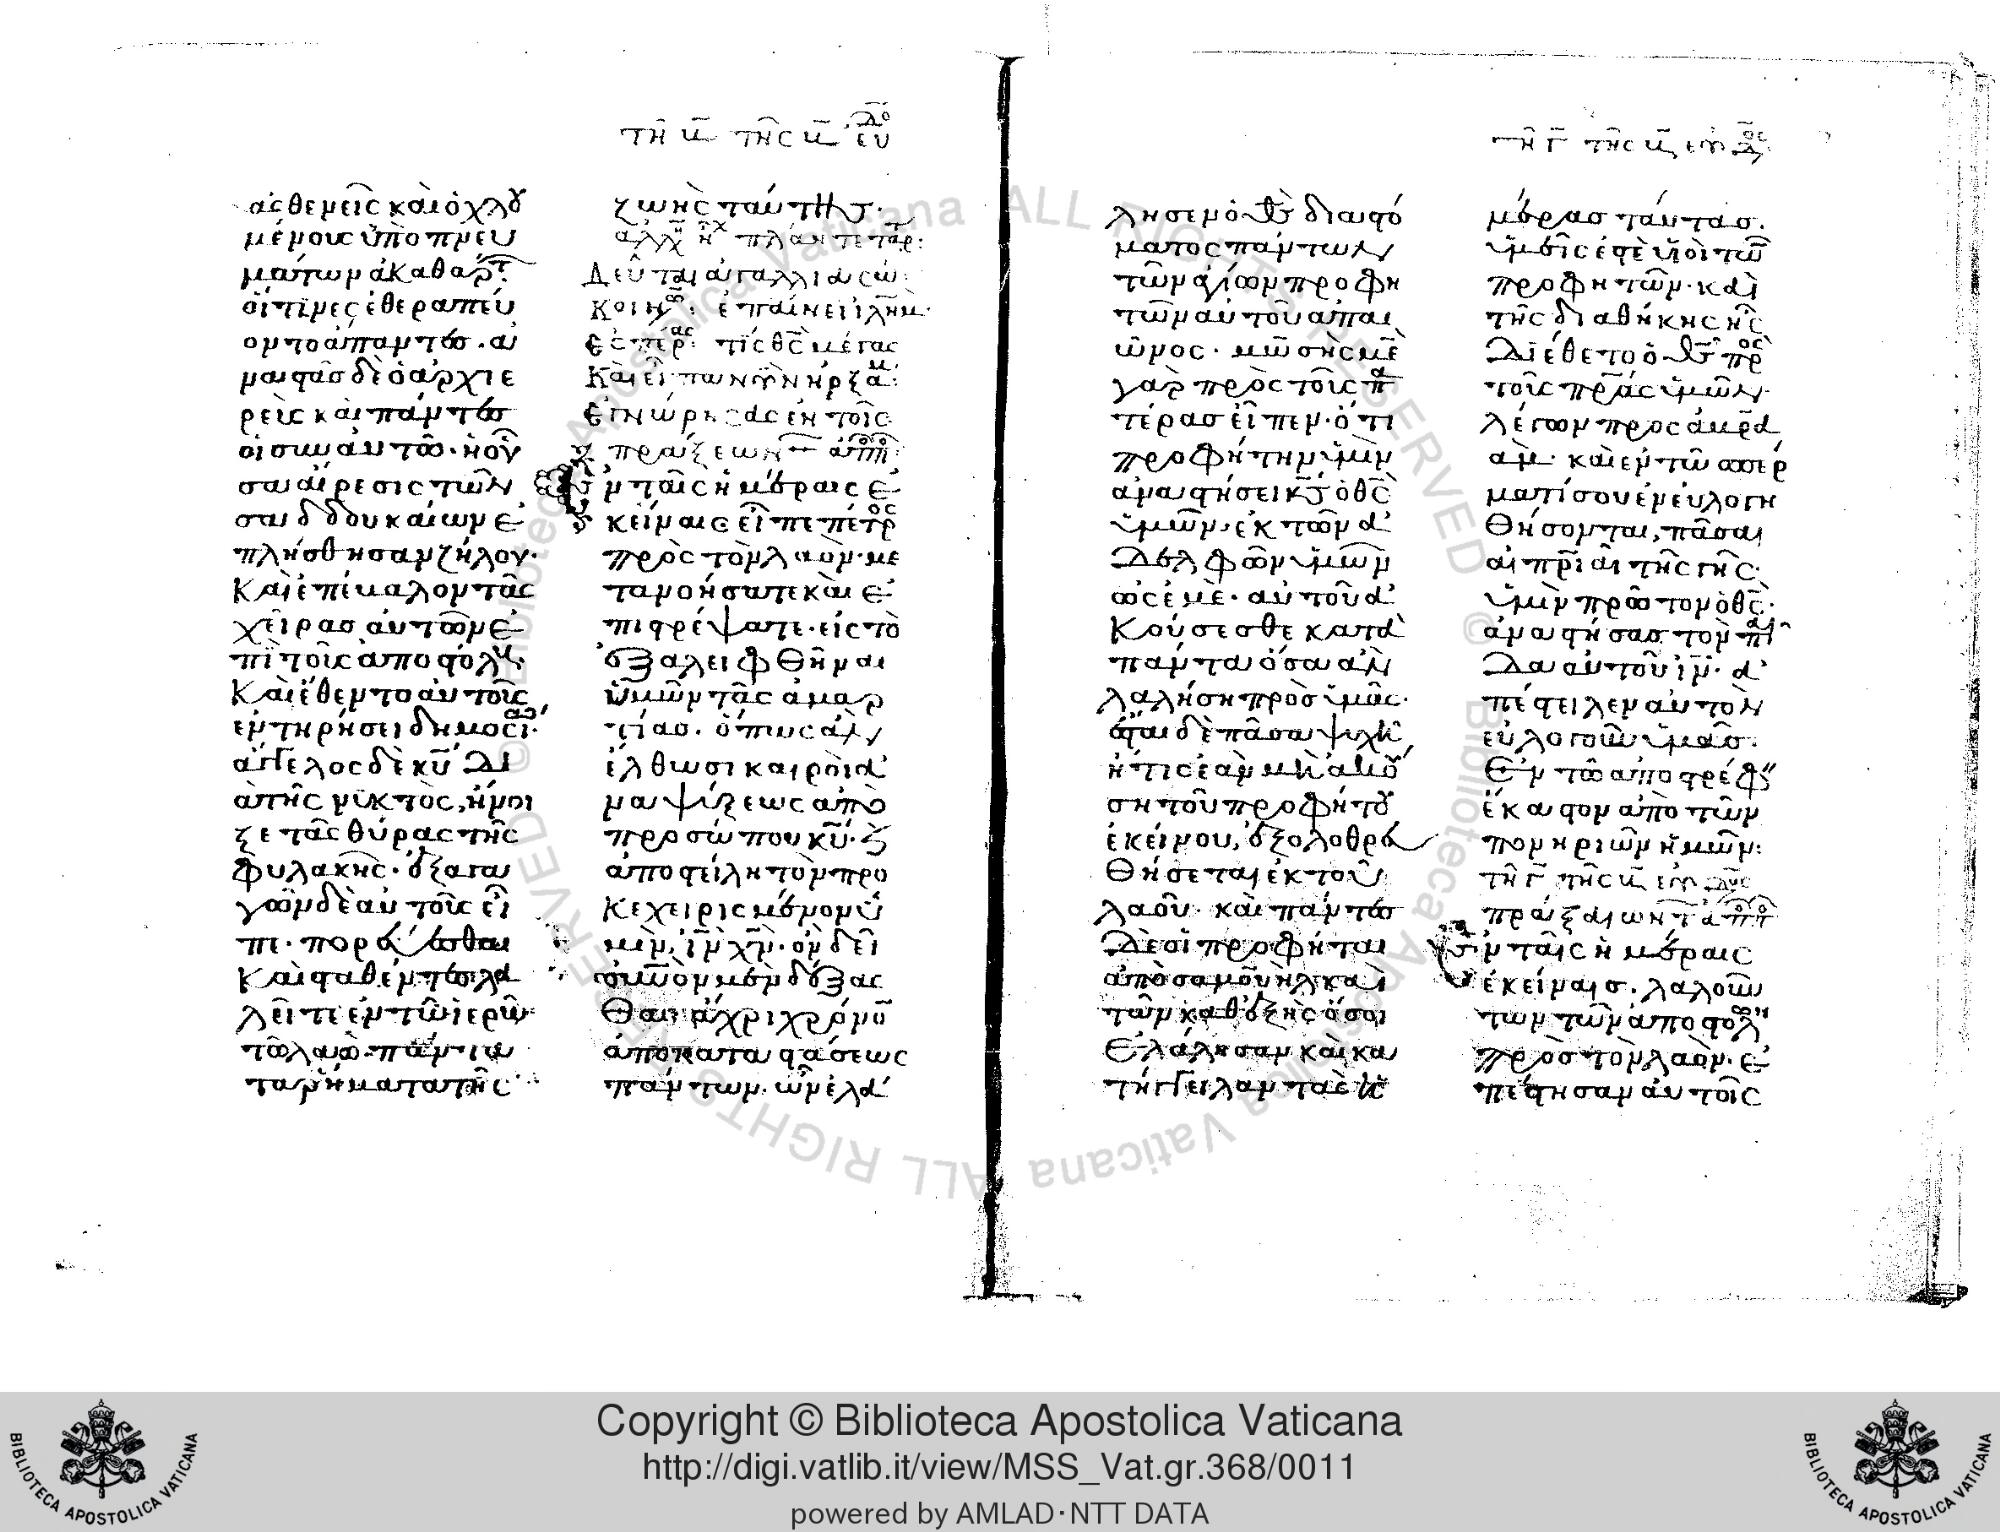 τῆ β τῆς β ἑβδο
ἀσθενεῖς καὶ ὀχλου
μένους ὑπὸ πνευ
μάτων ἀκαθάρτ
οἵτινες ἐθεραπεύ
οντο ἅπαντες. ἀ
ναστὰς δὲ ὁ ἀρχιε
ρεὺς καὶ πάντες
οἱ σὺν αὐτῶ. ἡ οὖ
σα αἵρεσις τῶν
σαδδουκαίων ἐ
πλήσθησαν ζήλου.
Καὶ ἐπέβαλον τὰς
χεῖρας αὐτῶν ἐ
πὶ τοὺς ἀποστόλους.
Καὶ ἔθεντο αὐτοὺς
ἐν τηρήσει δημοσία.
ἄγγελος δὲ κυ δι
ὰ τῆς νυκτὸς, ἤνοι
ξε τὰς θύρας τῆς
φυλακῆς. ἐξαγα
γὼν δὲ αὐτοὺς εἶ
πε. πορεύεσθαι
Καὶ σταθέντες λα
λεῖτε ἐν τῶ ἱερῶ
τῶ λαῶ. πάντα
τὰ ῥήματα τῆς
ζωῆς ταύτης.
Δεῦτε ἀγαλλιασώ
ἐπαίνει ιλημ.
Ἑσπέρας: τίς θς μέγας
Καὶ εἶπα νῦν ἠρξάμ:
Ἐγνώρησας ἐν τοῖς
πράξεων τ ἀποστ
Ἐν ταῖς ἡμέραις ἐ
κείναις εἶπε πέτρος
πρὸς τὸν λαὸν. με
τανοήσατε καὶ ἐ
πιστρέψατε. εἰς τὸ
ἐξαλειφθῆναι
ὑμῶν τὰς ἁμαρ
τίας. ὅπως ἂν
ἔλθωσι καιροὶ ἀ
ναψύξεως ἀπὸ
προσώπου κυ. καὶ
ἀποστείλη τὸν προ
κεχειρισμένον ὑ
μῖν, ιν χν. ὃν δεῖ
ουνον μὲν δέξας
θαι ἄχρι χρόνου
ἀποκαταστάσεως
πάντων. ὧν ἐλά
τῆ γ τῆς β ἑβδος
λησεν ὁ θς διὰ στό
ματος πάντων
τῶν ἁγίων προφη
τῶν αὐτοῦ ἀπ αι
ῶνος. μωσῆς μὲ
γὰρ πρὸς τοὺς πα
τέρας εἶπεν. ὅτι
προφήτην ὑμῖν
ἀναστήσει κς ὁ θς
ὑμῶν. ἐκ τῶν ἀ
δελφῶν ὑμῶν
ὡς ἐμὲ. αὐτοῦ ἀ
κούσεσθε κατὰ
πάντα ὅσα ἂν
λαλήση πρὸς ὑμᾶς.
ἔσται δὲ πᾶσα ψυχὴ
ἥτις ἐὰν μὴ ἀκού
ση τοῦ προφήτου
ἐκείνου, ἐξολοθρευ
θήσεται ἐκ τοῦ
λαοῦ. καὶ πάντες
δὲ οἱ προφῆται
ἀπὸ σαμουὴλ καὶ
τῶν καθεξῆς ὅσοι
ἐλάλησαν καὶ κα
τήγγειλαν τὰς ἡ
μέρας ταύτας.
ὑμεῖς ἐστὲ υἱοὶ τῶν
προφητῶν. καὶ
τῆς διαθήκης ἧς
διέθετο ὁ θς πρὸς
τοὺς πρας ὑμῶν.
λέγων πρὸς ἁβρα
ὰμ. καὶ ἐν τῶ σπέρ
ματί σου ἐνευλογη
θήσονται, πᾶσαι
αἱ πριαὶ τῆς γῆς.
ὑμῖν πρῶτον ὁ θς.
ἀναστήσας τὸν παῖ
δα αὐτοῦ ιν. ἀ
πέστειλεν αὐτὸν
εὐλογοῦν ὑμᾶς.
Ἐν τῶ ἀποστρέφειν
ἕκαστον ἀπὸ τῶν
πονηριῶν ἡμῶν:
τῆ γ τῆς β ἑβδος
πράξαιων τ ἀποστ
Ἐν ταῖς ἡμέραις
ἐκείναις. λαλούν
των τῶν ἀποστόλων
πρὸς τὸν λαὸν. ἐ
πέστησαν αὐτοῖς
Copyright © Biblioteca Apostolica Vaticana
http://digi.vatlib.it/view/MSS_Vat.gr.368/0011
powered by AMLAD·NTT DATA